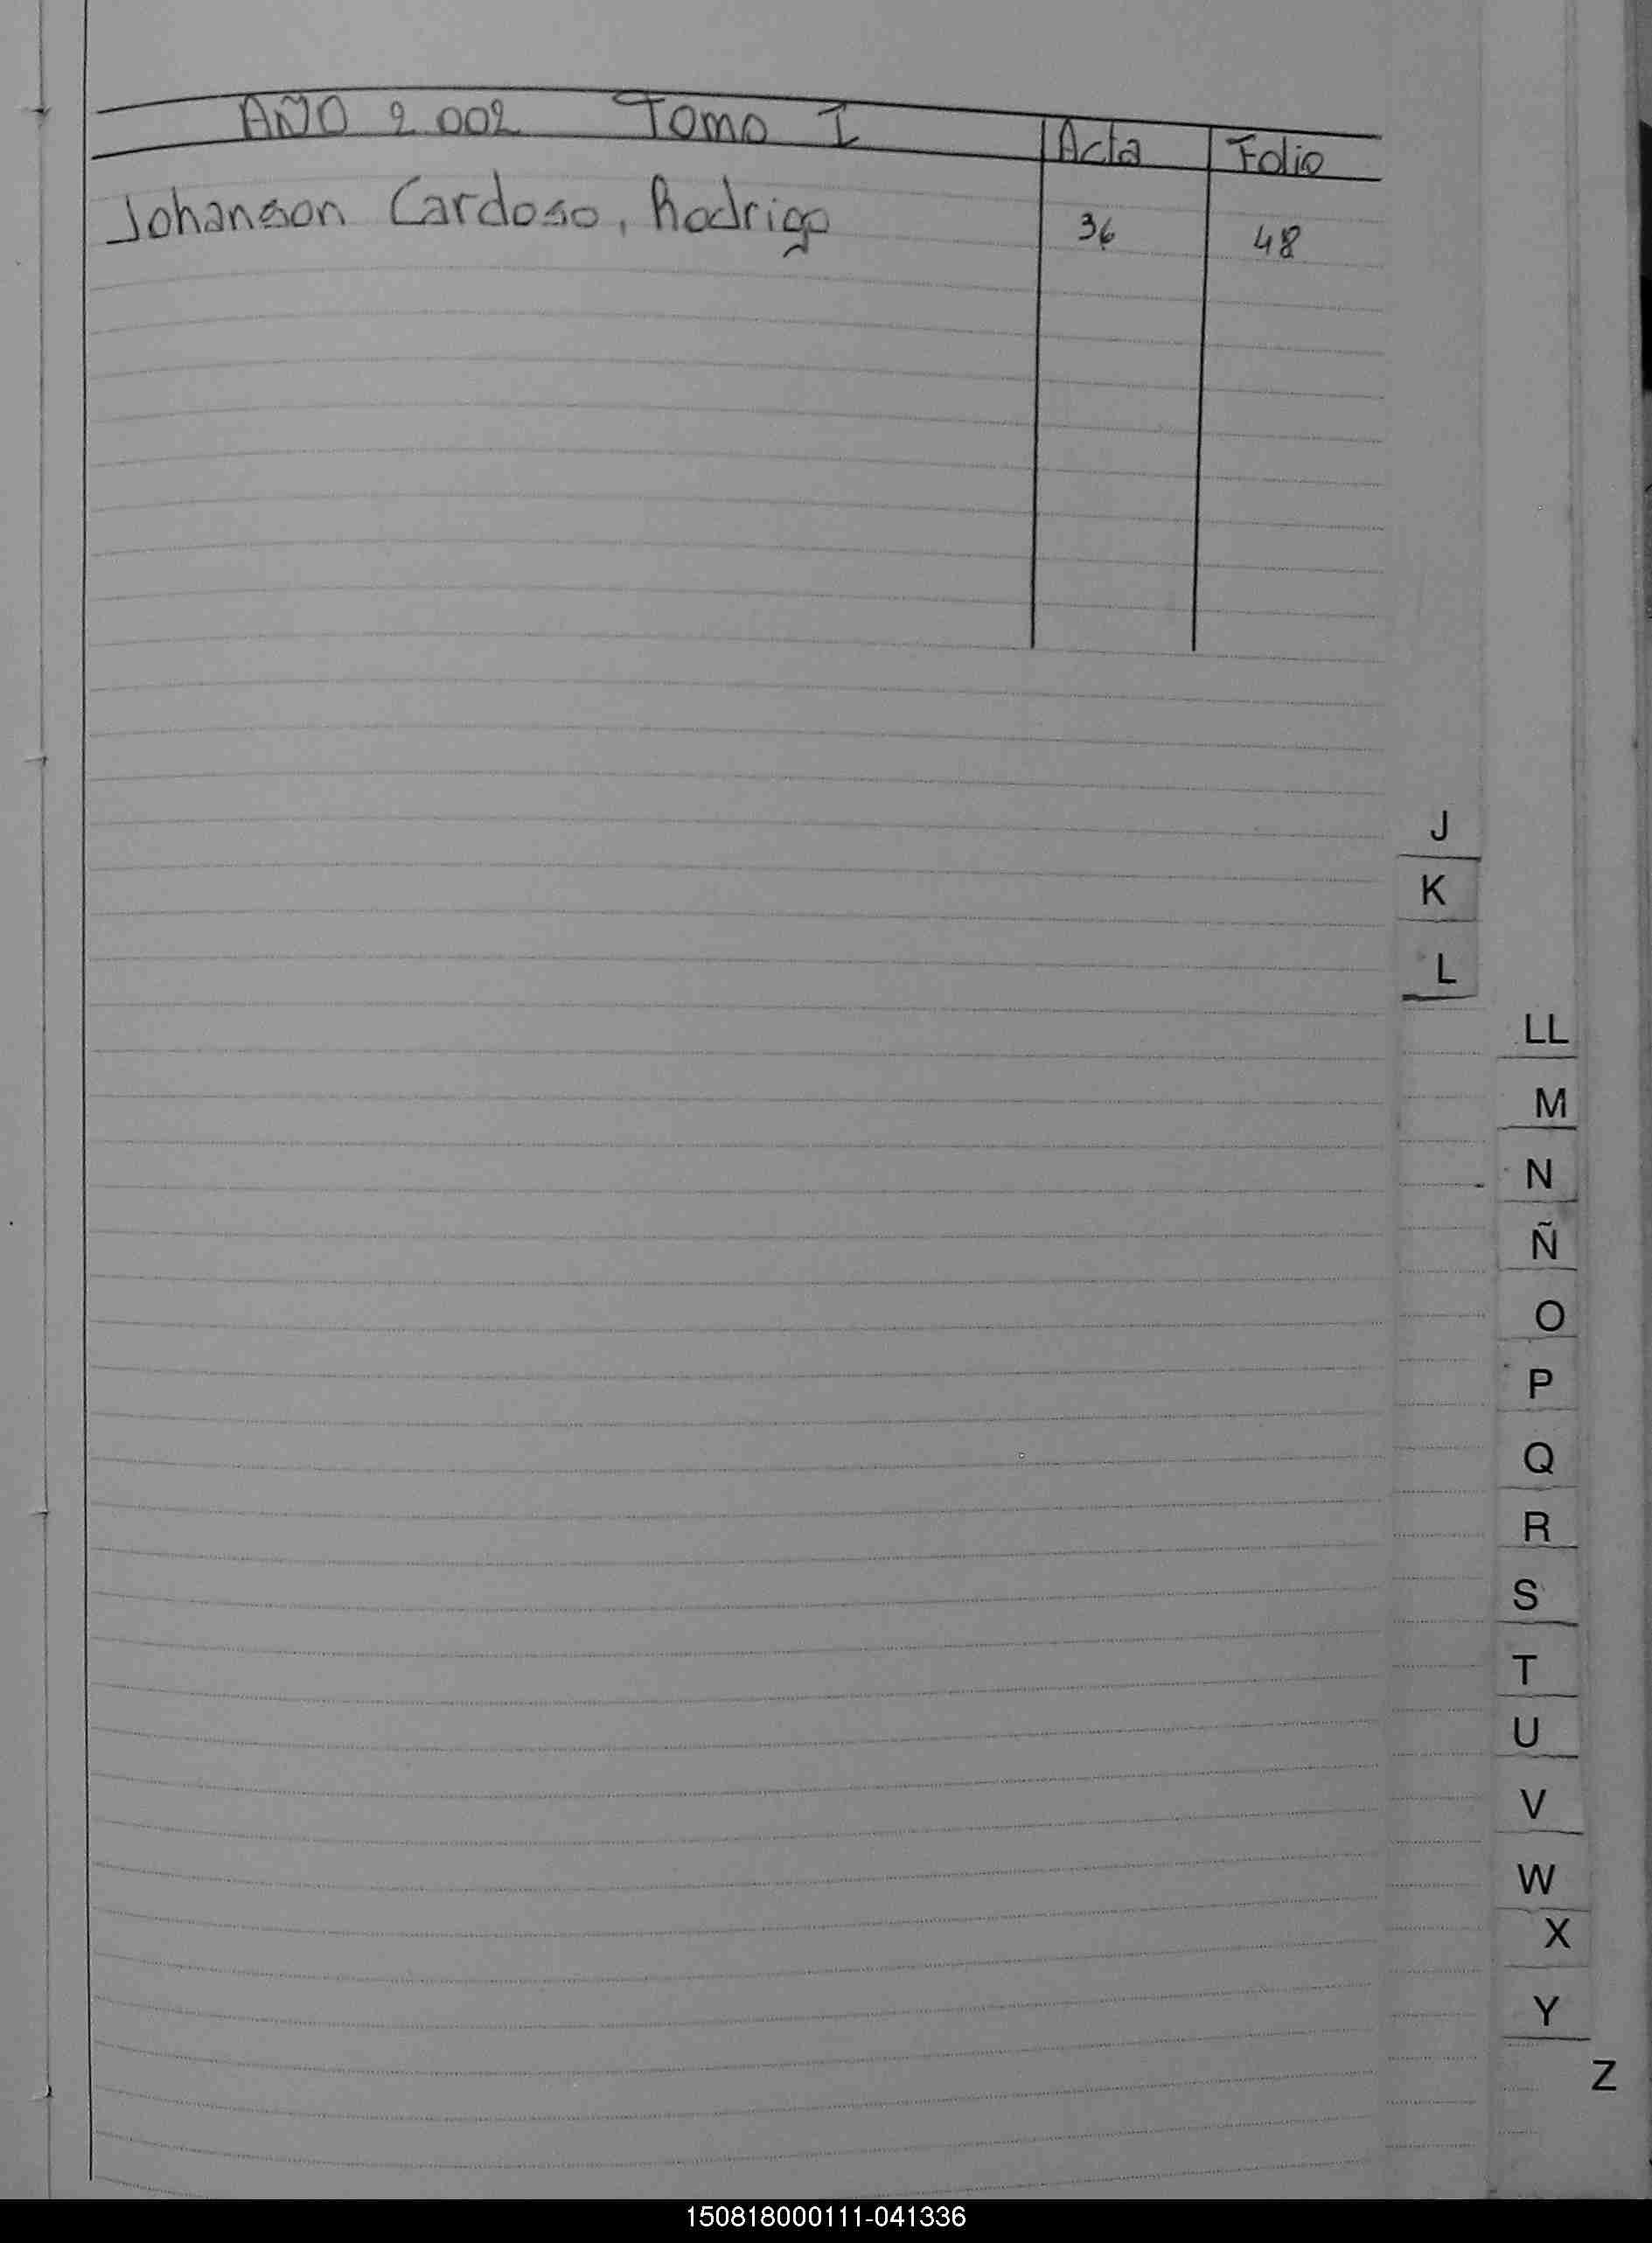 AÑO 2.002 Tomo I Acta Folio
Johanson Cardoso, Rodrigo 36 48
J
K
L
LL
M
N
Ñ
O
P
Q
R
S
T
U
V
W
X
Y
Z
150818000111-041336